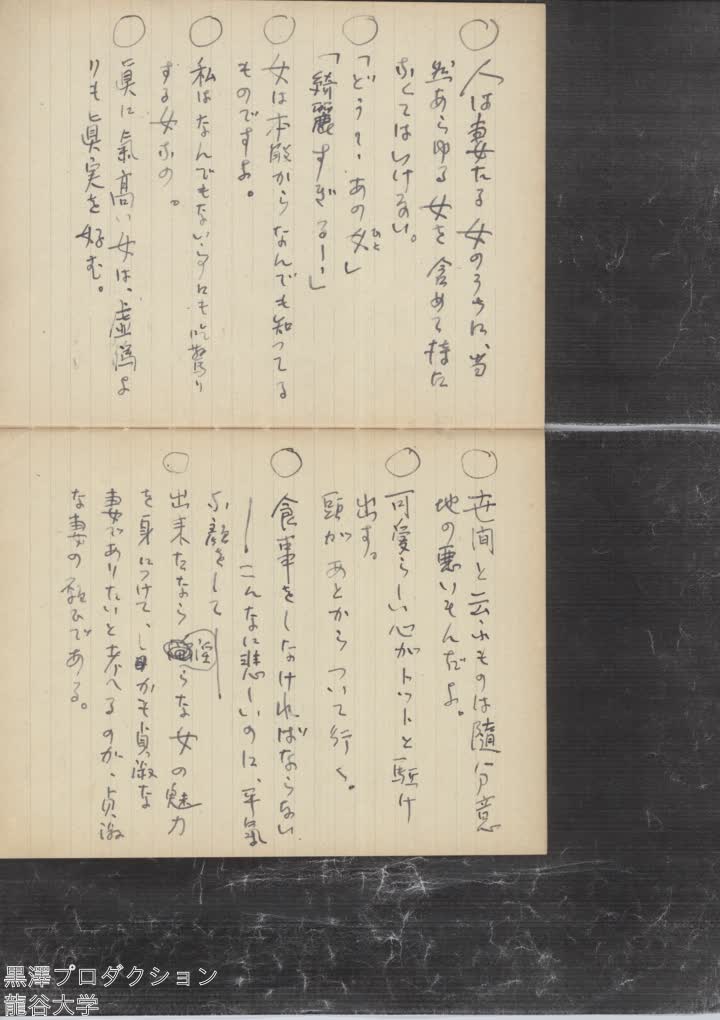 ○ 人は妻たる女のうちに、当
然あらゆる女を含めて持た
なくてはいけない。
○ 「どうて、あの女(ひと)」
「綺麗すぎるー、」
○ 女は本能からなんでも知ってる
ものですよ。
○ 私はなんでもない事にも吃驚り
する女なの。
○ 眞に氣高い女は、虚偽よ
りも眞実を好む。
○ 世間と云ふものは随分意
地の悪いもんだよ。
○ 可愛らしい心がトットと駈け
出す。
頭があとからついて行く。
○ 食事をしなければならない
ー こんなに悲しいのに、平氣
な顔をして ー
○ 出来たなら淫らな女の魅力
を身につけて、しかも貞淑な
妻でありたいと考へるのが、貞淑
な妻の歎びである。
黒澤プロダクション
龍谷大学